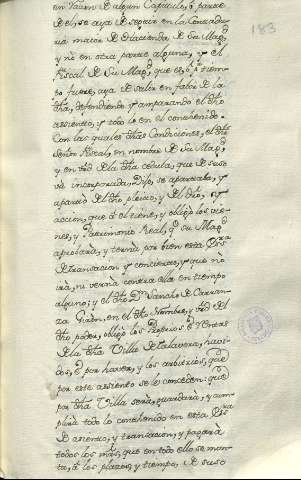 en razon de algun Capitulo, ô parte
de el, se aya de seguir en la Contadu
ria maior de Hacienda de Su Magd.
y nò en otra parte alguna, y el
fiscal de Su Magd. que es, ô p. tiem-
po fuere, aya de salir en fabor de la
dha, defendiendo y amparando el dho
assiento, y todo lo en el contenido.
Con las quales dhas Condiciones, el dho
Señor fiscal, en nombre de Su Magd.
y en vd. de la dha cedula, que de suso
và incorporada, Dijo, se apartaba, y
apartò del dho pleito, y del dro, y
accion, que à el tiene, y obligò los vie-
nes, y Patrimonio Real, que Su Magd.
aprobarà, y ternà por bien esta Scrip.ra
de transacion y concierto, y que nò
irà, ni vernà contra ella en tiempo
alguno; y el dho Dn. Sancho de Carran-
za Giron, en el dho Nombre, y vd. del
dho poder, obligò los Propios, è Rentas
de la dha Villa de Talavera, havi-
dos, è por haver, y los arbitrios, que
por este assiento se le conceden: que
por dha Villa serà, guardarà, y cum-
plirà todo lo contenido en esta Scrip.ra
de asiento, y transacion, y pagarà
todos los mrs, que en todo ello se mon-
ta, à los plazos, y tiempo, de suso
183